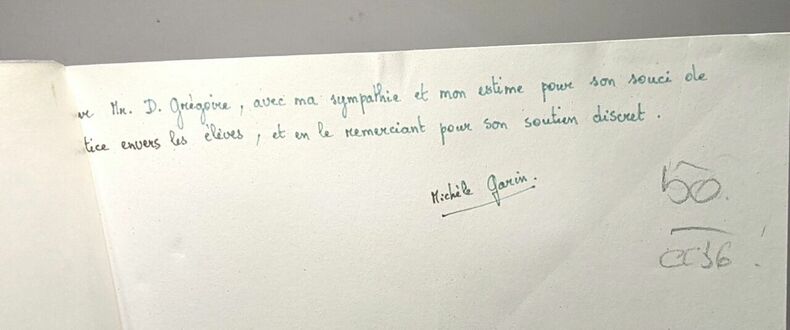 ur Mr. D. Grégoire, avec ma sympathie et mon estime pour son souci de
tice envers les élèves, et en le remerciant pour son soutien discret.
Michèle Garin.
50.